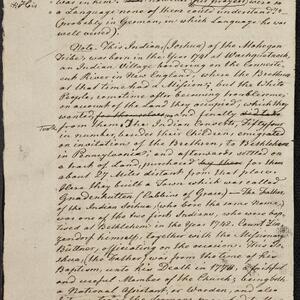 a Language none of them could understand
(probably in German, in which Language he was
well versed).
Note. This Indian, (Joshua) of the Mahegan
Tribe, was born in the Year 1741 at Wechquetank,
an Indian Village bordering the Connecti-
cut River in New England, where the Brethren
at that time had a Mission; but the White
People, sometime after being troublesome,
on account of the Land they occupied, which they
wanted
from them, The Indian Converts,
in number, besides their Children, emigrated
on invitation of the Brethren, to Bethlehem
in Pennsylvania; and afterwards settled on
a tract of Land, purchased for them
about 27 Miles distant from that place.
Here they built a Town which was called
Gnadenhutten (Cabbins of Grace). The Father
of the Indian Joshua, (who bore the same Name)
was one of the two first Indians, who were bap-
tised at Bethlehem, in the Year 1742. Count Zin-
zendorf himself, together with the Missionary
Büttner, officiating on the occasion. This Jo-
shua, (the Father) was from the time of his
Baptism, unto his Death in 1775, a faithful
and useful Member of the Church; being both
a National Assistant, or Warden, and also